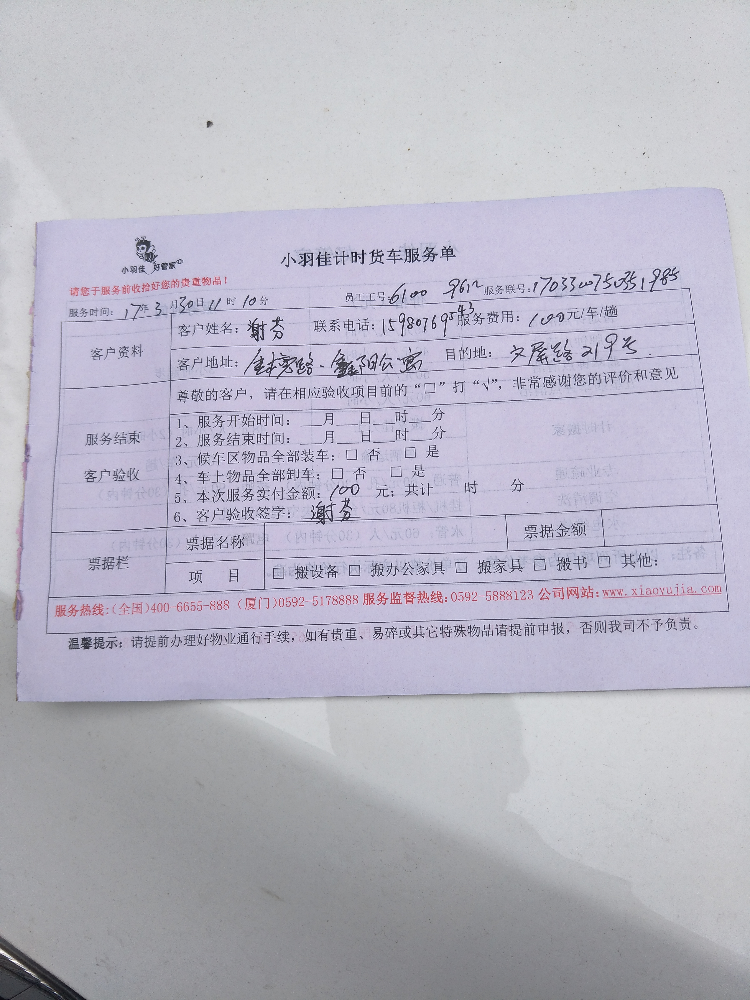 小羽佳 好管家
小羽佳计时货车服务单
请您于服务前收捡好您的贵重物品！
服务时间：17年3月30日11时10分 员工工号：6100 9612 服务联号：
客户资料
客户姓名：谢芬 联系电话：15980769543 服务费用：100元/车/趟
客户地址： 目的地：文屏路219号
尊敬的客户，请在相应验收项目前的“□”打“√”，非常感谢您的评价和意见
服务结束
客户验收
1、服务开始时间：__月__日__时__分
2、服务结束时间：__月__日__时__分
3、候车区物品全部装车：□ 否 □ 是
4、车上物品全部卸车：□ 否 □ 是
5、本次服务实付金额：100 元；共计 时 分
6、客户验收签字：谢芬
票据栏
票据名称 票据金额
项 目 □ 搬设备 □ 搬办公家具 □ 搬家具 □ 搬书 □ 其他：
服务热线：(全国)400 6655-888 (厦门)0592-5178888 服务监督热线：0592 5888123 公司网站：www.xiaoyujia.com
温馨提示：请提前办理好物业通行手续，如有贵重、易碎或其它特殊物品请提前申报，否则我司不予负责。